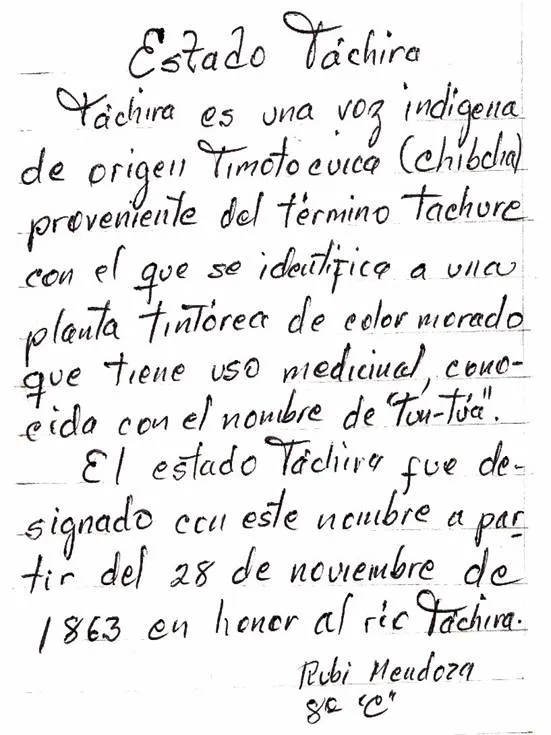 Estado Táchira
Táchira es una voz indígena
de origen Timotocuica (chibcha)
proveniente del término tachure
con el que se identifica a una
planta tintórea de color morado
que tiene uso medicinal, cono-
cida con el nombre de "tun-túa".
El estado Táchira fue de-
signado con este nombre a par-
tir del 28 de noviembre de
1863 en honor al río Táchira.
Rubi Mendoza
8º "C"